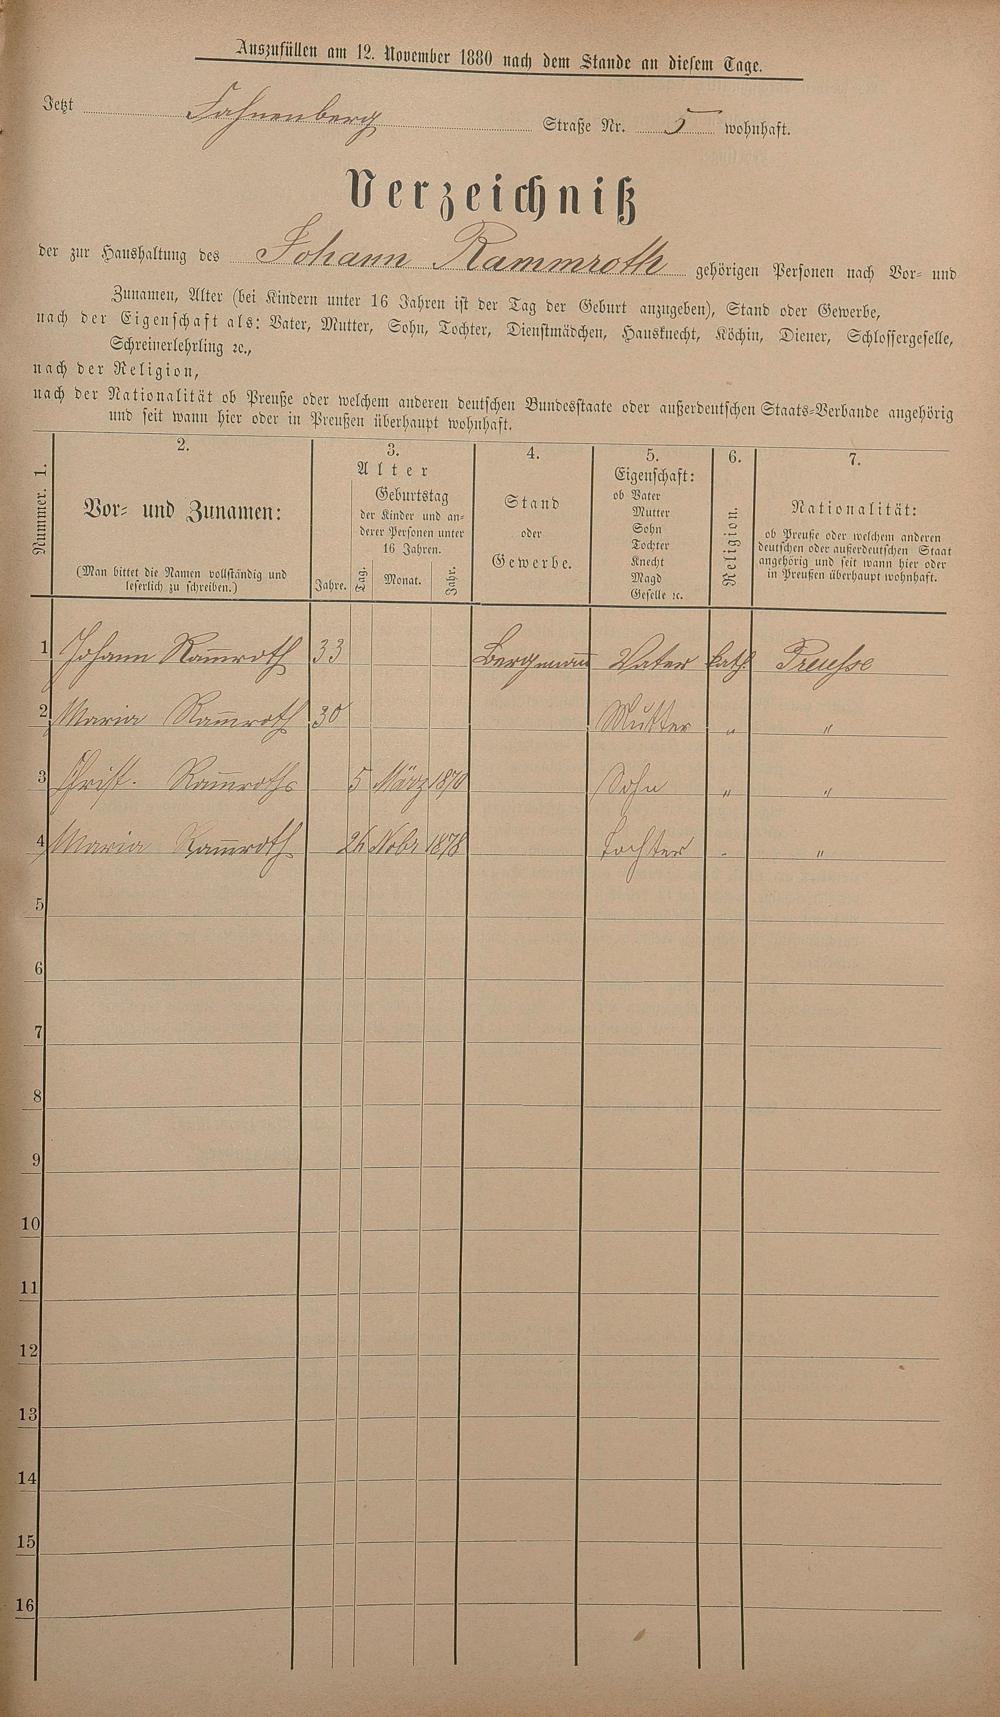 Auszufüllen am 12. November 1880 nach dem Stande an diesem Tage.
Jetzt Fahnenberg Straße Nr. 5 wohnhaft.
Verzeichniß
der zur Haushaltung des Johann Rammroth gehörigen Personen nach Vor- und
Zunamen, Alter (bei Kindern unter 16 Jahren ist der Tag der Geburt anzugeben), Stand oder Gewerbe,
nach der Eigenschaft als: Vater, Mutter, Sohn, Tochter, Dienstmädchen, Hausknecht, Köchin, Diener, Schlossergeselle,
Schreinerlehrling ꝛc.,
nach der Religion,
nach der Nationalität ob Preuße oder welchem anderen deutschen Bundesstaate oder außerdeutschen Staats-Verbande angehörig
und seit wann hier oder in Preußen überhaupt wohnhaft.
Nummer. 1.
2.
Vor- und Zunamen:
(Man bittet die Namen vollständig und
leserlich zu schreiben.)
3.
Alter
Geburtstag
der Kinder und an-
derer Personen unter
16 Jahren.
Jahre. Tag. Monat. Jahr.
4.
Stand
oder
Gewerbe.
5.
Eigenschaft:
ob Vater
Mutter
Sohn
Tochter
Knecht
Magd
Geselle ꝛc.
6.
Religion.
7.
Nationalität:
ob Preuße oder welchem anderen
deutschen oder außerdeutschen Staat
angehörig und seit wann hier oder
in Preußen überhaupt wohnhaft.
1 Johann Ram̅roth 33 Bergmann Vater kath. Preusse
2 Maria Ram̅roth 30 Mutter " "
3 Christ. Ram̅roths 5 März 1870 Sohn " "
4 Maria Ram̅roth 26 Nobr 1878 Tochter " "
5
6
7
8
9
10
11
12
13
14
15
16